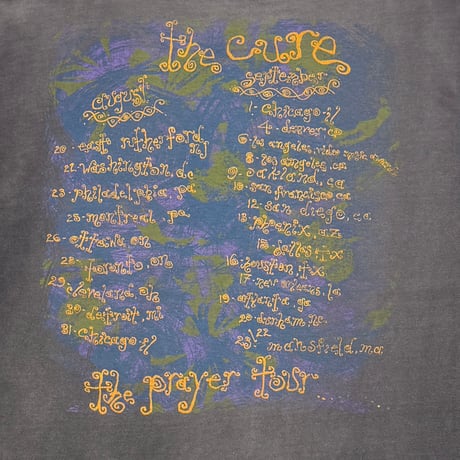 the cure
august
20 - east rutherford, nj
22 - washington, d.c
23 - philadelphia, pa
25 - montreal, pq
26 - ottawa, on
28 - toronto, on
29 - cleveland, oh
30 - detroit, mi
31 - chicago il
september
1 - chicago il
4 - denver co
6 - los angeles,
8 - los angeles, ca
9 - oakland, ca
10 - san francisco, ca
12 - san diego, ca
13 - phoenix, az
15 dallas, tx
16 - houston, tx
17 - new orleans, la
19 - atlanta, ga
20 - durham nc
22
mansfield, ma
the prayer tour